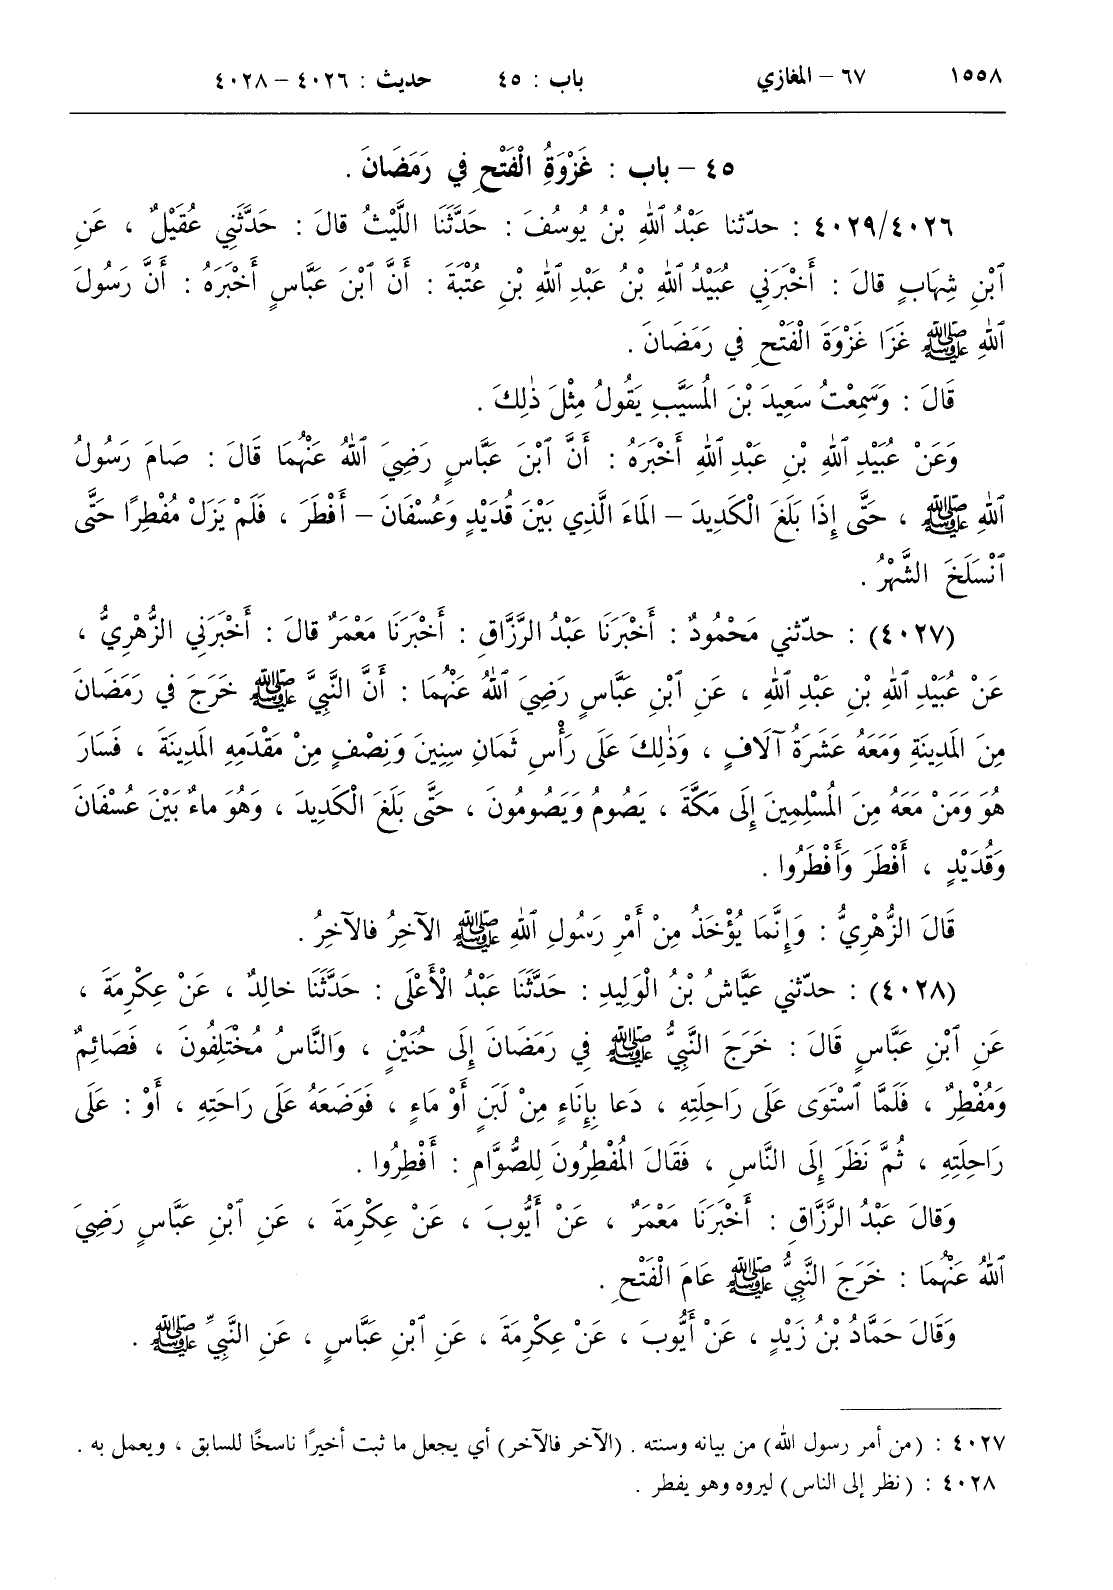 ١٥٥٨ ٦٧ – المغازي باب : ٤٥ حديث : ٤٠٢٦ – ٤٠٢٨
٤٥ – باب : غَزْوَةُ الْفَتْحِ في رَمَضَانَ .
٤٠٢٩/٤٠٢٦ : حدّثنا عَبْدُ ٱللهِ بْنُ يُوسُفَ : حَدَّثَنَا اللَّيْثُ قالَ : حَدَّثَنِي عُقَيْلٌ ، عَنِ
ٱبْنِ شِهَابٍ قالَ : أَخْبَرَنِي عُبَيْدُ ٱللهِ بْنُ عَبْدِ ٱللهِ بْنِ عُتْبَةَ : أَنَّ ٱبْنَ عَبَّاسٍ أَخْبَرَهُ : أَنَّ رَسُولَ
ٱللهِ ﷺ غَزَا غَزْوَةَ الْفَتْحِ في رَمَضَانَ .
قَالَ : وَسَمِعْتُ سَعِيدَ بْنَ المُسَيَّبِ يَقُولُ مِثْلَ ذٰلِكَ .
وَعَنْ عُبَيْدِ ٱللهِ بْنِ عَبْدِ ٱللهِ أَخْبَرَهُ : أَنَّ ٱبْنَ عَبَّاسٍ رَضِيَ ٱللهُ عَنْهُمَا قَالَ : صَامَ رَسُولُ
ٱللهِ ﷺ ، حَتَّى إِذَا بَلَغَ الْكَدِيدَ – المَاءَ الَّذِي بَيْنَ قُدَيْدٍ وَعُسْفَانَ – أَفْطَرَ ، فَلَمْ يَزَلْ مُفْطِرًا حَتَّى
ٱنْسَلَخَ الشَّهْرُ .
(٤٠٢٧) : حدّثني مَحْمُودٌ : أَخْبَرَنَا عَبْدُ الرَّزَّاقِ : أَخْبَرَنَا مَعْمَرٌ قالَ : أَخْبَرَنِي الزُّهْرِيُّ ،
عَنْ عُبَيْدِ ٱللهِ بْنِ عَبْدِ ٱللهِ ، عَنِ ٱبْنِ عَبَّاسٍ رَضِيَ ٱللهُ عَنْهُمَا : أَنَّ النَّبِيَّ ﷺ خَرَجَ في رَمَضَانَ
مِنَ المَدِينَةِ وَمَعَهُ عَشَرَةُ آلَافٍ ، وَذٰلِكَ عَلَى رَأْسِ ثَمَانِ سِنِينَ وَنِصْفٍ مِنْ مَقْدَمِهِ المَدِينَةَ ، فَسَارَ
هُوَ وَمَنْ مَعَهُ مِنَ المُسْلِمِينَ إِلَى مَكَّةَ ، يَصُومُ وَيَصُومُونَ ، حَتَّى بَلَغَ الْكَدِيدَ ، وَهُوَ ماءٌ بَيْنَ عُسْفَانَ
وَقُدَيْدٍ ، أَفْطَرَ وَأَفْطَرُوا .
قَالَ الزُّهْرِيُّ : وَإِنَّمَا يُؤْخَذُ مِنْ أَمْرِ رَسُولِ ٱللهِ ﷺ الآخِرُ فالآخِرُ .
(٤٠٢٨) : حدّثني عَيَّاشُ بْنُ الْوَلِيدِ : حَدَّثَنَا عَبْدُ الْأَعْلَى : حَدَّثَنَا خالِدٌ ، عَنْ عِكْرِمَةَ ،
عَنِ ٱبْنِ عَبَّاسٍ قَالَ : خَرَجَ النَّبِيُّ ﷺ في رَمَضَانَ إِلَى حُنَيْنٍ ، وَالنَّاسُ مُخْتَلِفُونَ ، فَصَائِمٌ
وَمُفْطِرٌ ، فَلَمَّا ٱسْتَوَى عَلَى رَاحِلَتِهِ ، دَعا بِإِنَاءٍ مِنْ لَبَنٍ أَوْ مَاءٍ ، فَوَضَعَهُ عَلَى رَاحَتِهِ ، أَوْ : عَلَى
رَاحِلَتِهِ ، ثُمَّ نَظَرَ إِلَى النَّاسِ ، فَقَالَ المُفْطِرُونَ لِلصُّوَّامِ : أَفْطِرُوا .
وَقالَ عَبْدُ الرَّزَّاقِ : أَخْبَرَنَا مَعْمَرٌ ، عَنْ أَيُّوبَ ، عَنْ عِكْرِمَةَ ، عَنِ ٱبْنِ عَبَّاسٍ رَضِيَ
ٱللهُ عَنْهُمَا : خَرَجَ النَّبِيُّ ﷺ عَامَ الْفَتْحِ .
وَقَالَ حَمَّادُ بْنُ زَيْدٍ ، عَنْ أَيُّوبَ ، عَنْ عِكْرِمَةَ ، عَنِ ٱبْنِ عَبَّاسٍ ، عَنِ النَّبِيِّ ﷺ .
٤٠٢٧ : (من أمر رسول الله) من بيانه وسنته . (الآخر فالآخر) أي يجعل ما ثبت أخيرًا ناسخًا للسابق ، ويعمل به .
٤٠٢٨ : (نظر إلى الناس) ليروه وهو يفطر .